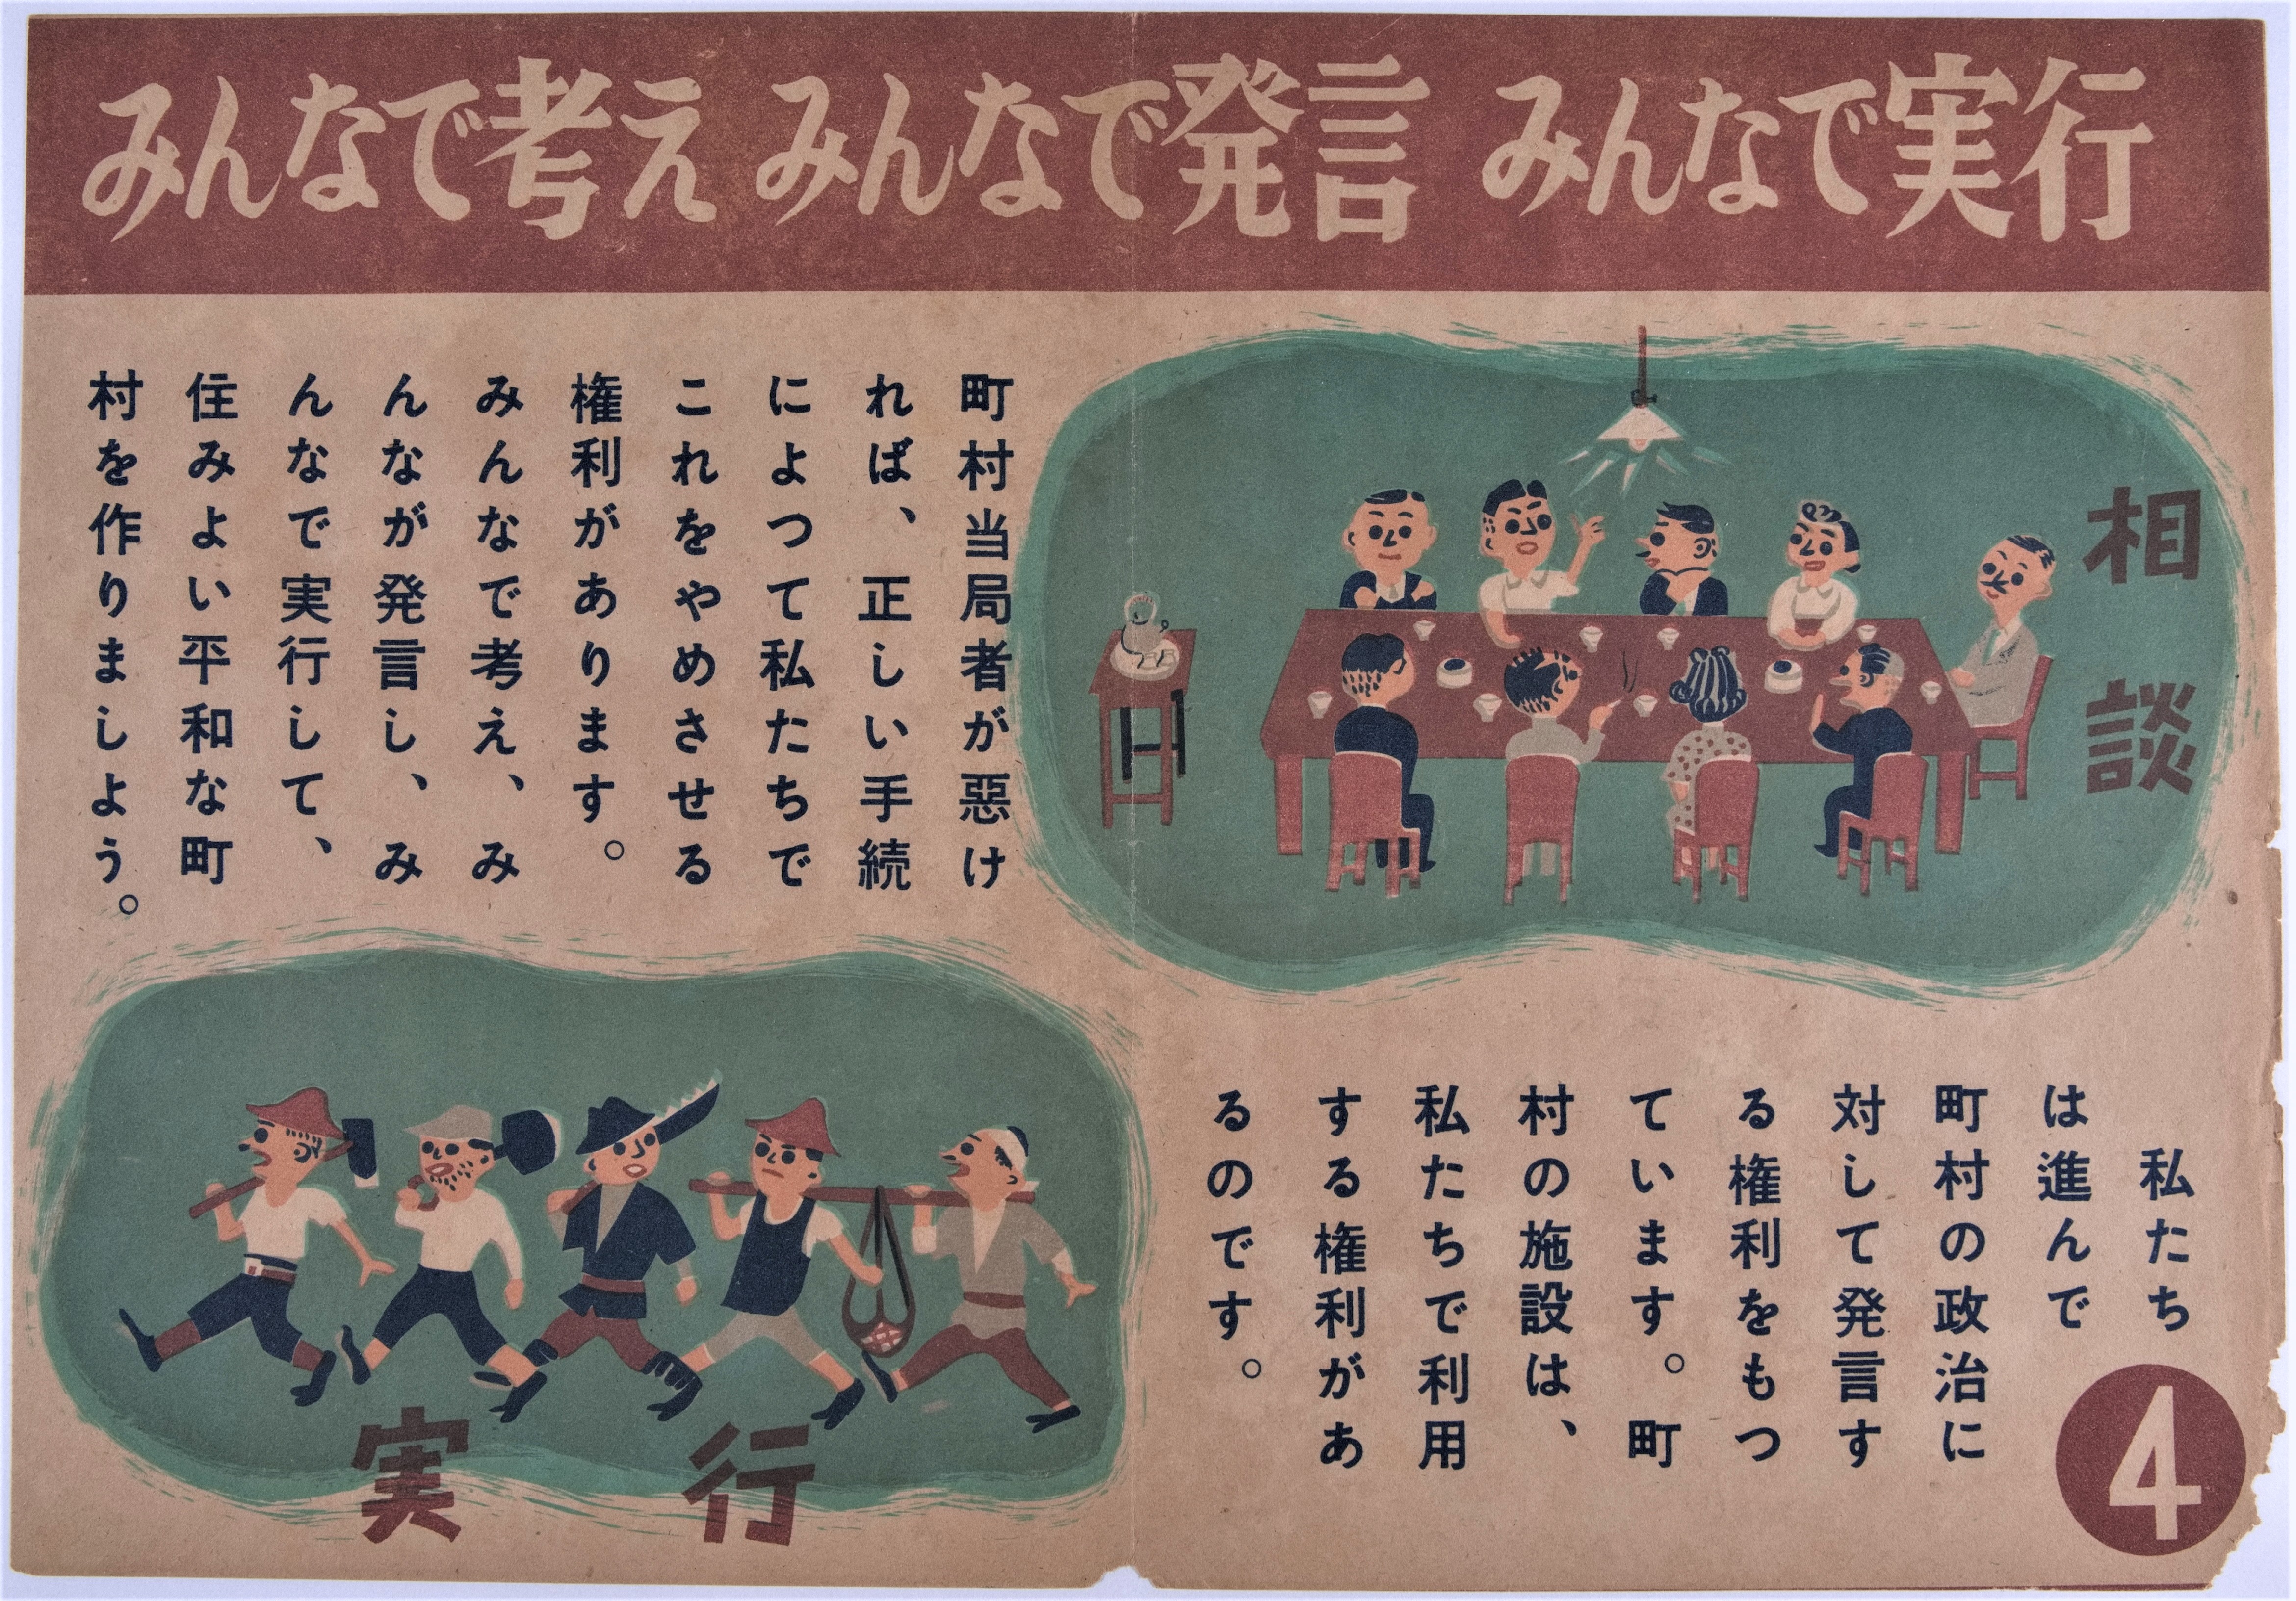 みんなで考え みんなで発言 みんなで実行
相談
私たち
は進んで
町村の政治に
対して発言す
る権利をもつ
ています。町
村の施設は、
私たちで利用
する権利があ
るのです。
町村当局者が悪け
れば、正しい手続
によつて私たちで
これをやめさせる
権利があります。
みんなで考え、み
んなが発言し、み
んなで実行して、
住みよい平和な町
村を作りましよう。
実行
4